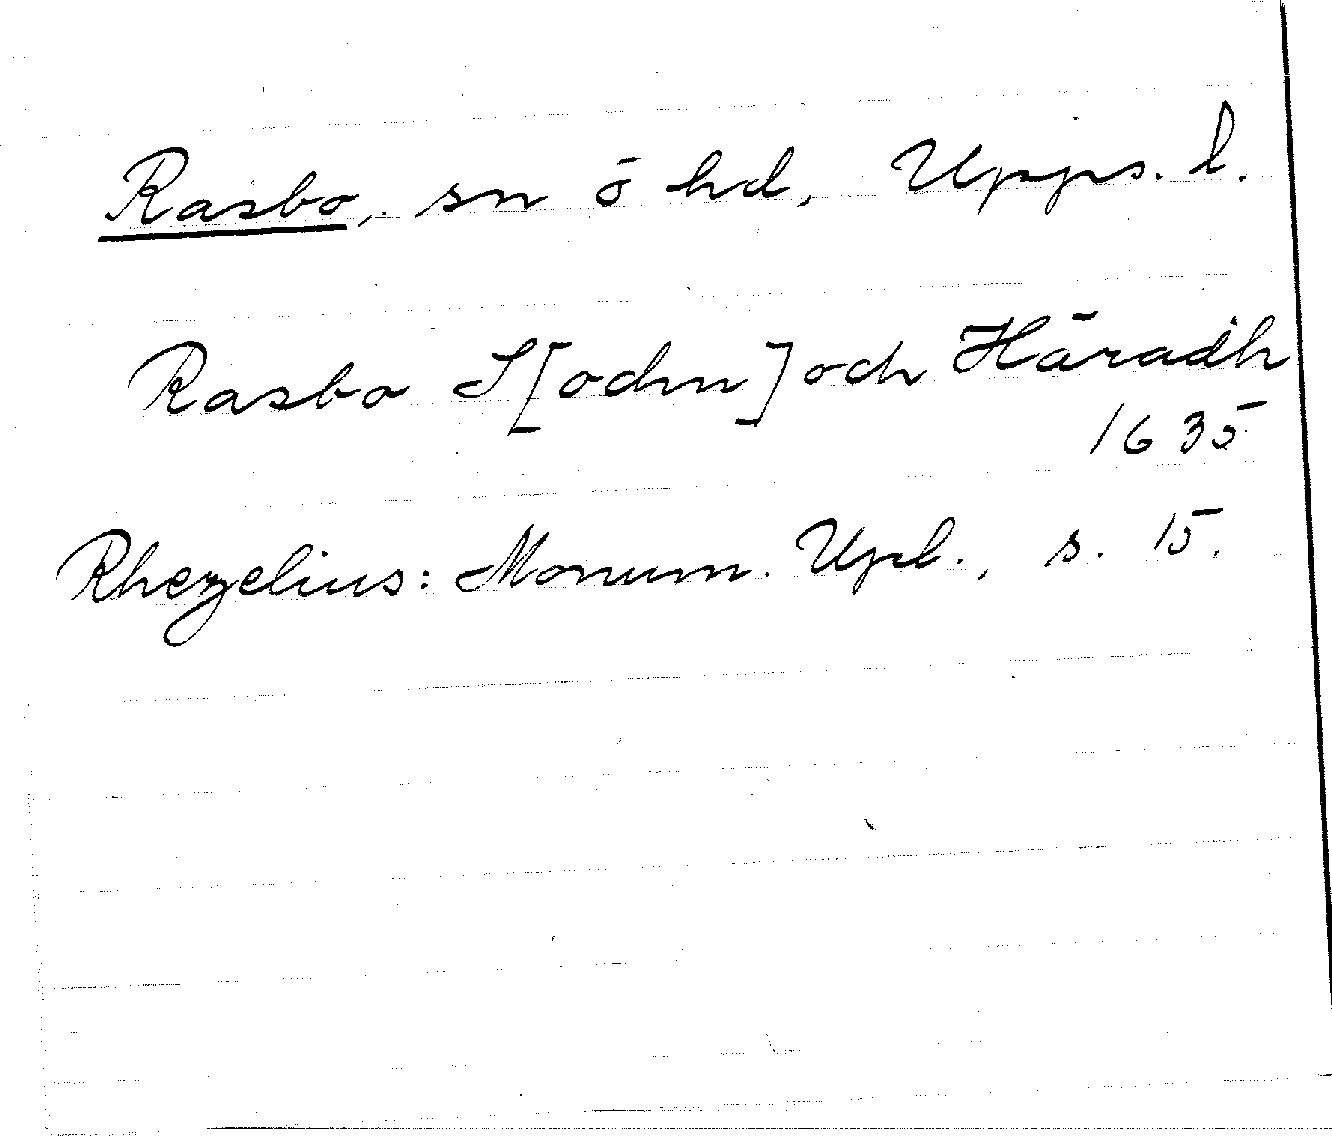 Rasbo, sn ō hd, Upps. l.
Rasbo S[ochn] och Häradh
1635
Rhezelius: Monum. Upl., s. 15.